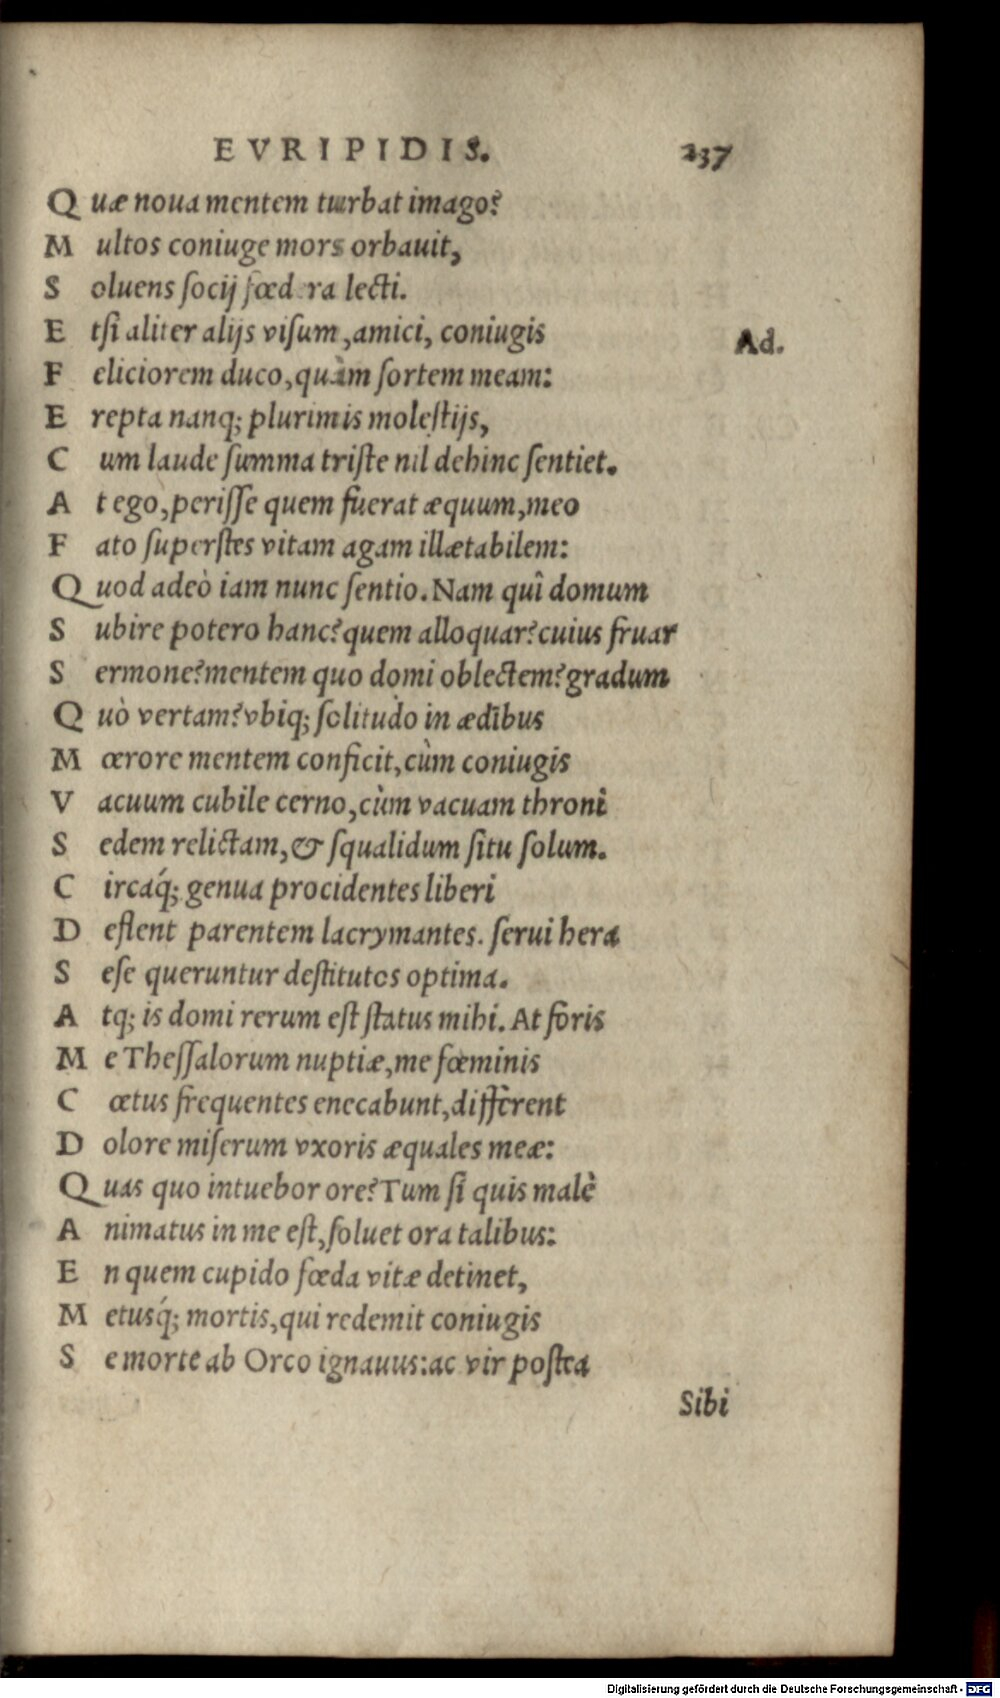 EVRIPIDIS. 237
Quæ noua mentem turbat imago?
Multos coniuge mors orbauit,
Soluens socij fœdera lecti.
Etsi aliter alijs visum, amici, coniugis Ad.
Feliciorem duco, quàm sortem meam:
Erepta nanq; plurimis molestijs,
Cum laude summa triste nil dehinc sentiet.
At ego, perisse quem fuerat æquum, meo
Fato superstes vitam agam illætabilem:
Quod adeò iam nunc sentio. Nam quî domum
Subire potero hanc? quem alloquar? cuius fruar
Sermone? mentem quo domi oblectem? gradum
Quò vertam? vbiq; solitudo in ædibus
Mœrore mentem conficit, cùm coniugis
Vacuum cubile cerno, cùm vacuam throni
Sedem relictam, & squalidum situ solum.
Circaq́; genua procidentes liberi
Deflent parentem lacrymantes. serui hera
Sese queruntur destitutos optima.
Atq; is domi rerum est status mihi. At foris
Me Thessalorum nuptiæ, me fœminis
Cœtus frequentes enecabunt, different
Dolore miserum vxoris æquales meæ:
Quas quo intuebor ore? Tum si quis malè
Animatus in me est, soluet ora talibus:
En quem cupido fœda vitæ detinet,
Metusq́; mortis, qui redemit coniugis
Se morte ab Orco ignauus: ac vir postea
Sibi
Digitalisierung gefördert durch die Deutsche Forschungsgemeinschaft - DFG